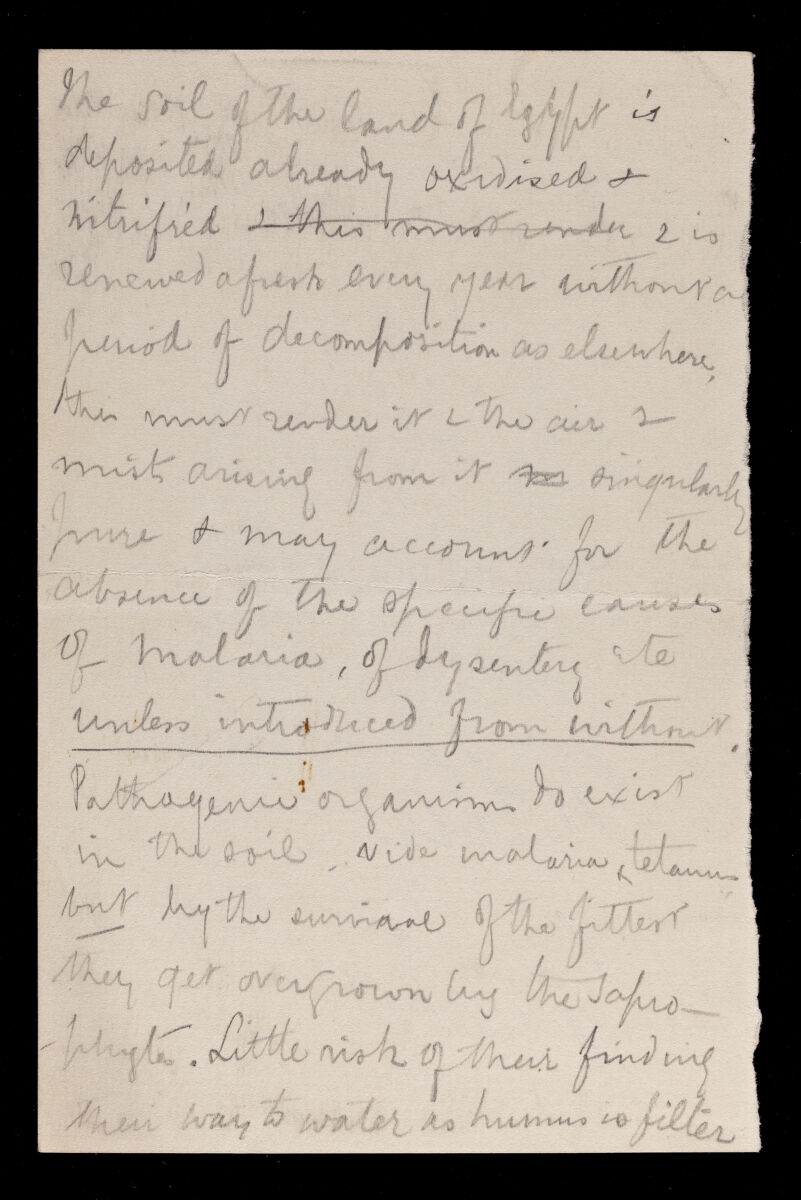 The soil of the land of Egypt is
deposited already oxidised &
nitrified & this must render & is
renewed afresh every year without a
period of decomposition as elsewhere,
this must render it & the air &
mists arising from it singularly
pure & may account for the
absence of the specific causes
of Malaria, of dysentery etc
unless introduced from without.
Pathogenic organisms do exist
in the soil, vide malaria, tetanus
but by the survival of the fittest
they get overgrown by the Sapro-
-phytes. Little risk of their finding
their way to water as humus is filter